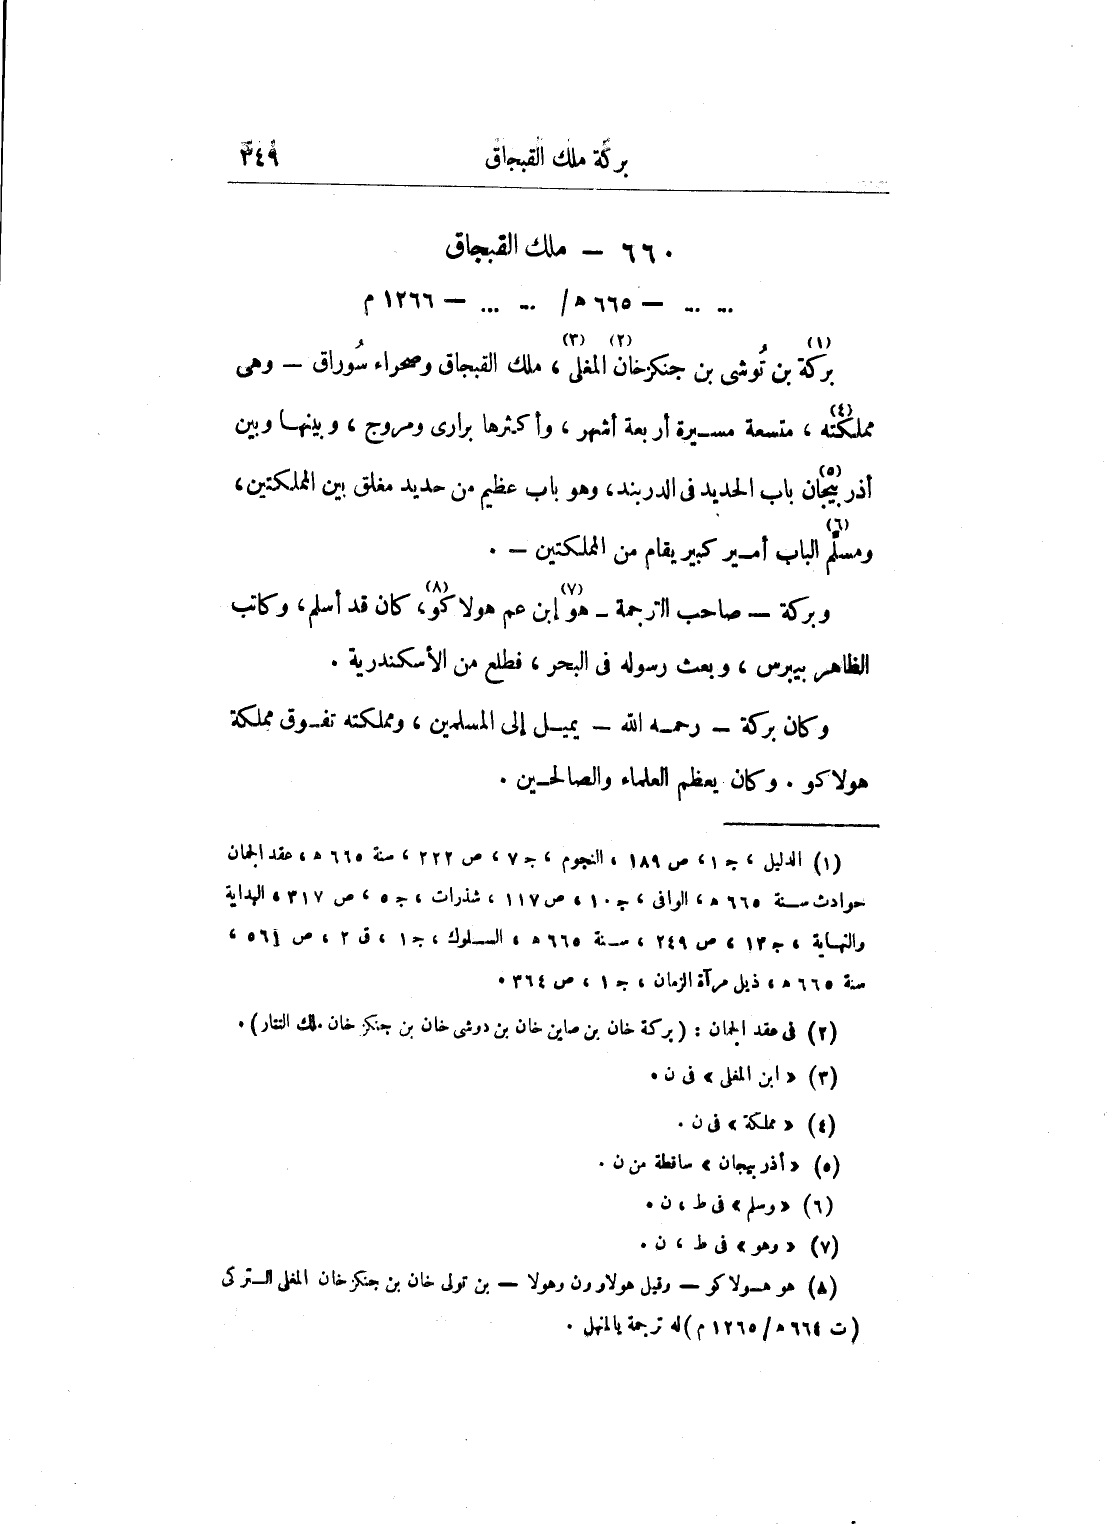 بركة ملك القبجاق ٣٤٩
٦٦٠ – ملك القبجاق
... ... – ٦٦٥ ه/ ... ... – ١٢٦٦ م
(١) (٢) (٣)
بركة بن تُوشى بن جنكزخان المغلى ، ملك القبجاق وصحراء سُوراق – وهى
(٤)
مملكته ، متسعة مسيرة أربعة أشهر ، وأكثرها برارى ومروج ، وبينها وبين
(٥)
أذر بيجان باب الحديد فى الدربند، وهو باب عظيم من حديد مغلق بين المملكتين،
(٦)
ومسلّم الباب أمير كبير يقام من المملكتين – .
(٧) (٨)
وبركة – صاحب الترجمة – هو إبن عم هولاكو، كان قد أسلم، وكاتب
الظاهر بيبرس ، وبعث رسوله فى البحر ، فطلع من الأسكندرية .
وكان بركة – رحمه الله – يميل إلى المسلمين ، ومملكته تفوق مملكة
هولاكو . وكان يعظم العلماء والصالحين .
(١) الدليل ، ج ١، ص ١٨٩ ، النجوم ، ج ٧ ، ص ٢٢٢ ، سنة ٦٦٥ ه ، عقد الجمان
حوادث سنة ٦٦٥ ه ، الوافى ، ج ١٠ ، ص ١١٧ ، شذرات ، ج ٥ ، ص ٣١٧ ، البداية
والنهاية ، ج ١٣ ، ص ٢٤٩ ، سنة ٦٦٥ ه ، السلوك ، ج ١ ، ق ٢ ، ص ٥٦١ ،
سنة ٦٦٥ ه ، ذيل مرآة الزمان ، ج ١ ، ص ٣٦٤ .
(٢) فى عقد الجمان : (بركة خان بن صاين خان بن دوشى خان بن جنكز خان ملك التتار) .
(٣) « ابن المغلى » فى ن .
(٤) « مملكة » فى ن .
(٥) « أذر بيجان » ساقطة من ن .
(٦) « وسلم » فى ط ، ن .
(٧) « وهو » فى ط ، ن .
(٨) هو هولاكو – وقيل هولاوون وهولا – بن تولى خان بن جنكز خان المغلى التركى
(ت ٦٦٤ ه/ ١٢٦٥ م) له ترجمة بالمنهل .